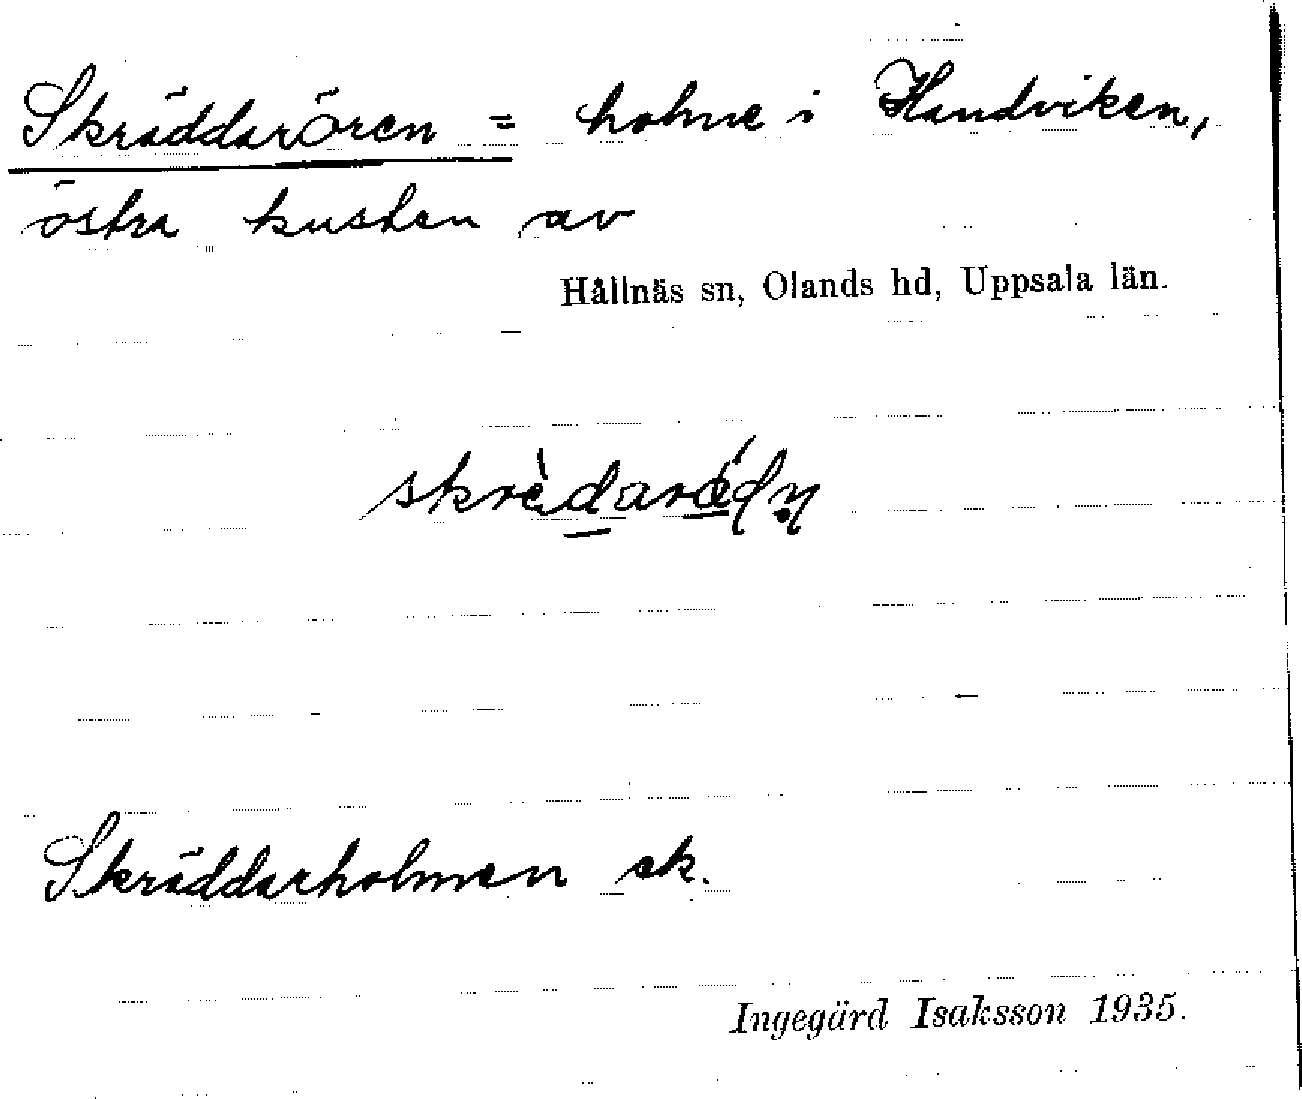 Skräddarören = holme i Handviken,
östra kusten av
Hållnäs sn, Olands hd, Uppsala län.
Skräddarholmen ek.
Ingegärd Isaksson 1935.